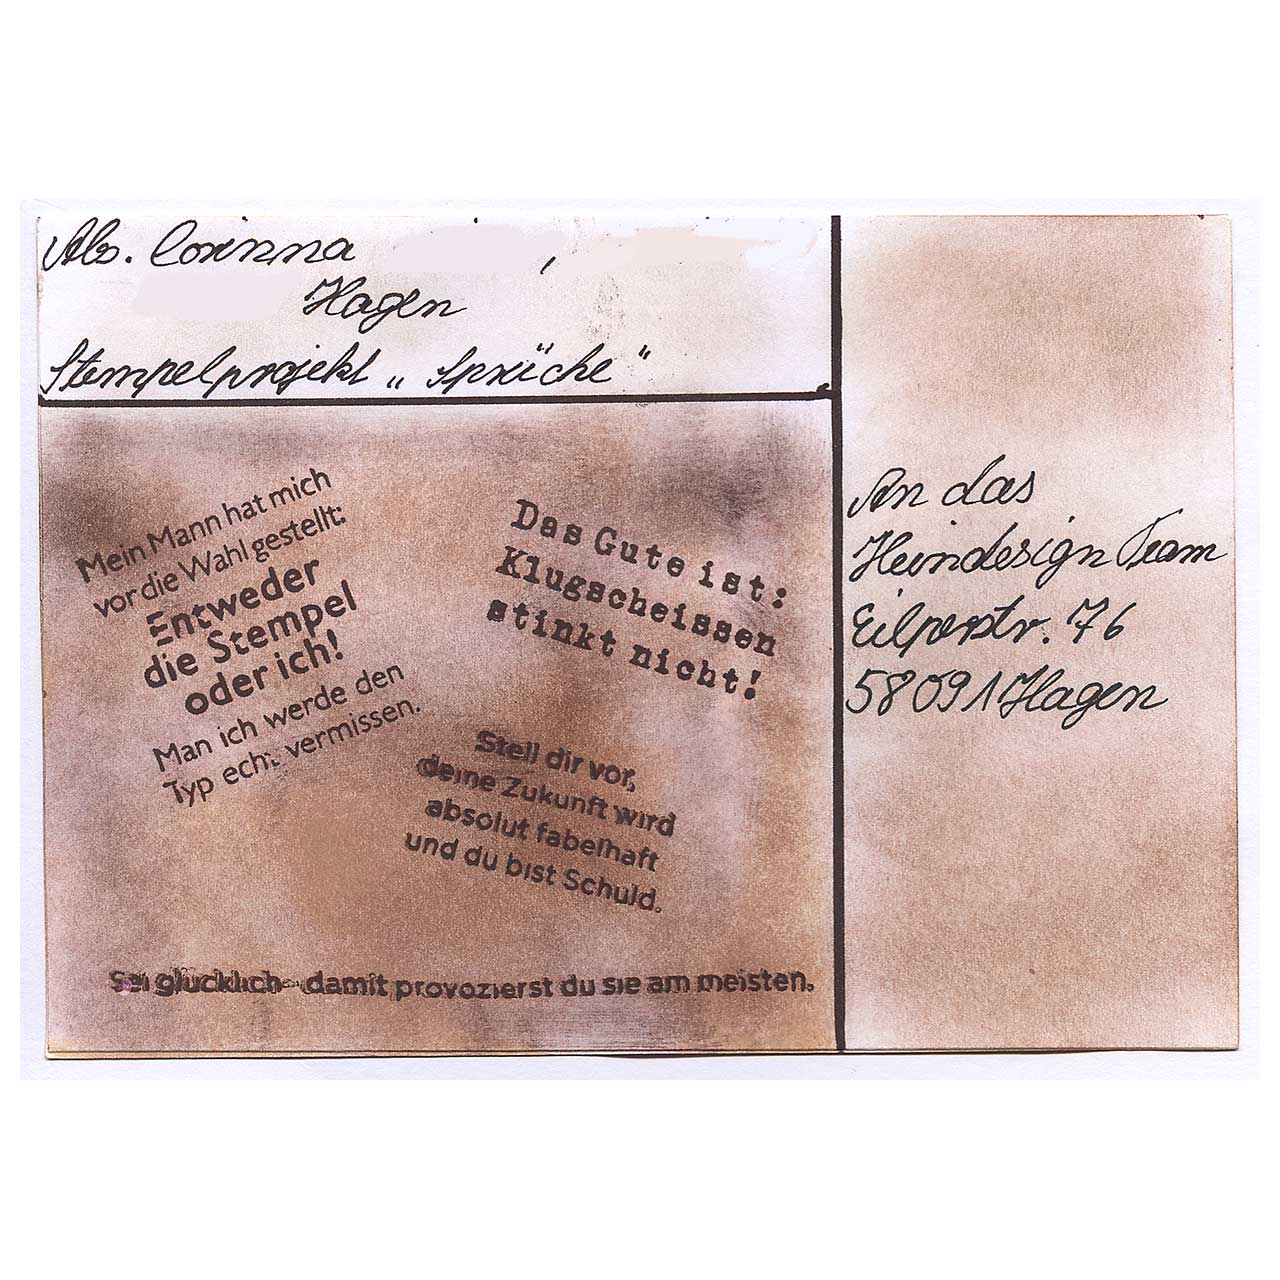 Abs. Corinna ,
Hagen
Stempelprojekt „Sprüche“
Mein Mann hat mich
vor die Wahl gestellt:
Entweder
die Stempel
oder ich!
Man ich werde den
Typ echt vermissen.
Das Gute ist:
Klugscheissen
stinkt nicht!
Stell dir vor,
deine Zukunft wird
absolut fabelhaft
und du bist Schuld.
Sei glücklich - damit provozierst du sie am meisten.
An das
Heindesign Team
Eilperstr. 76
58091 Hagen